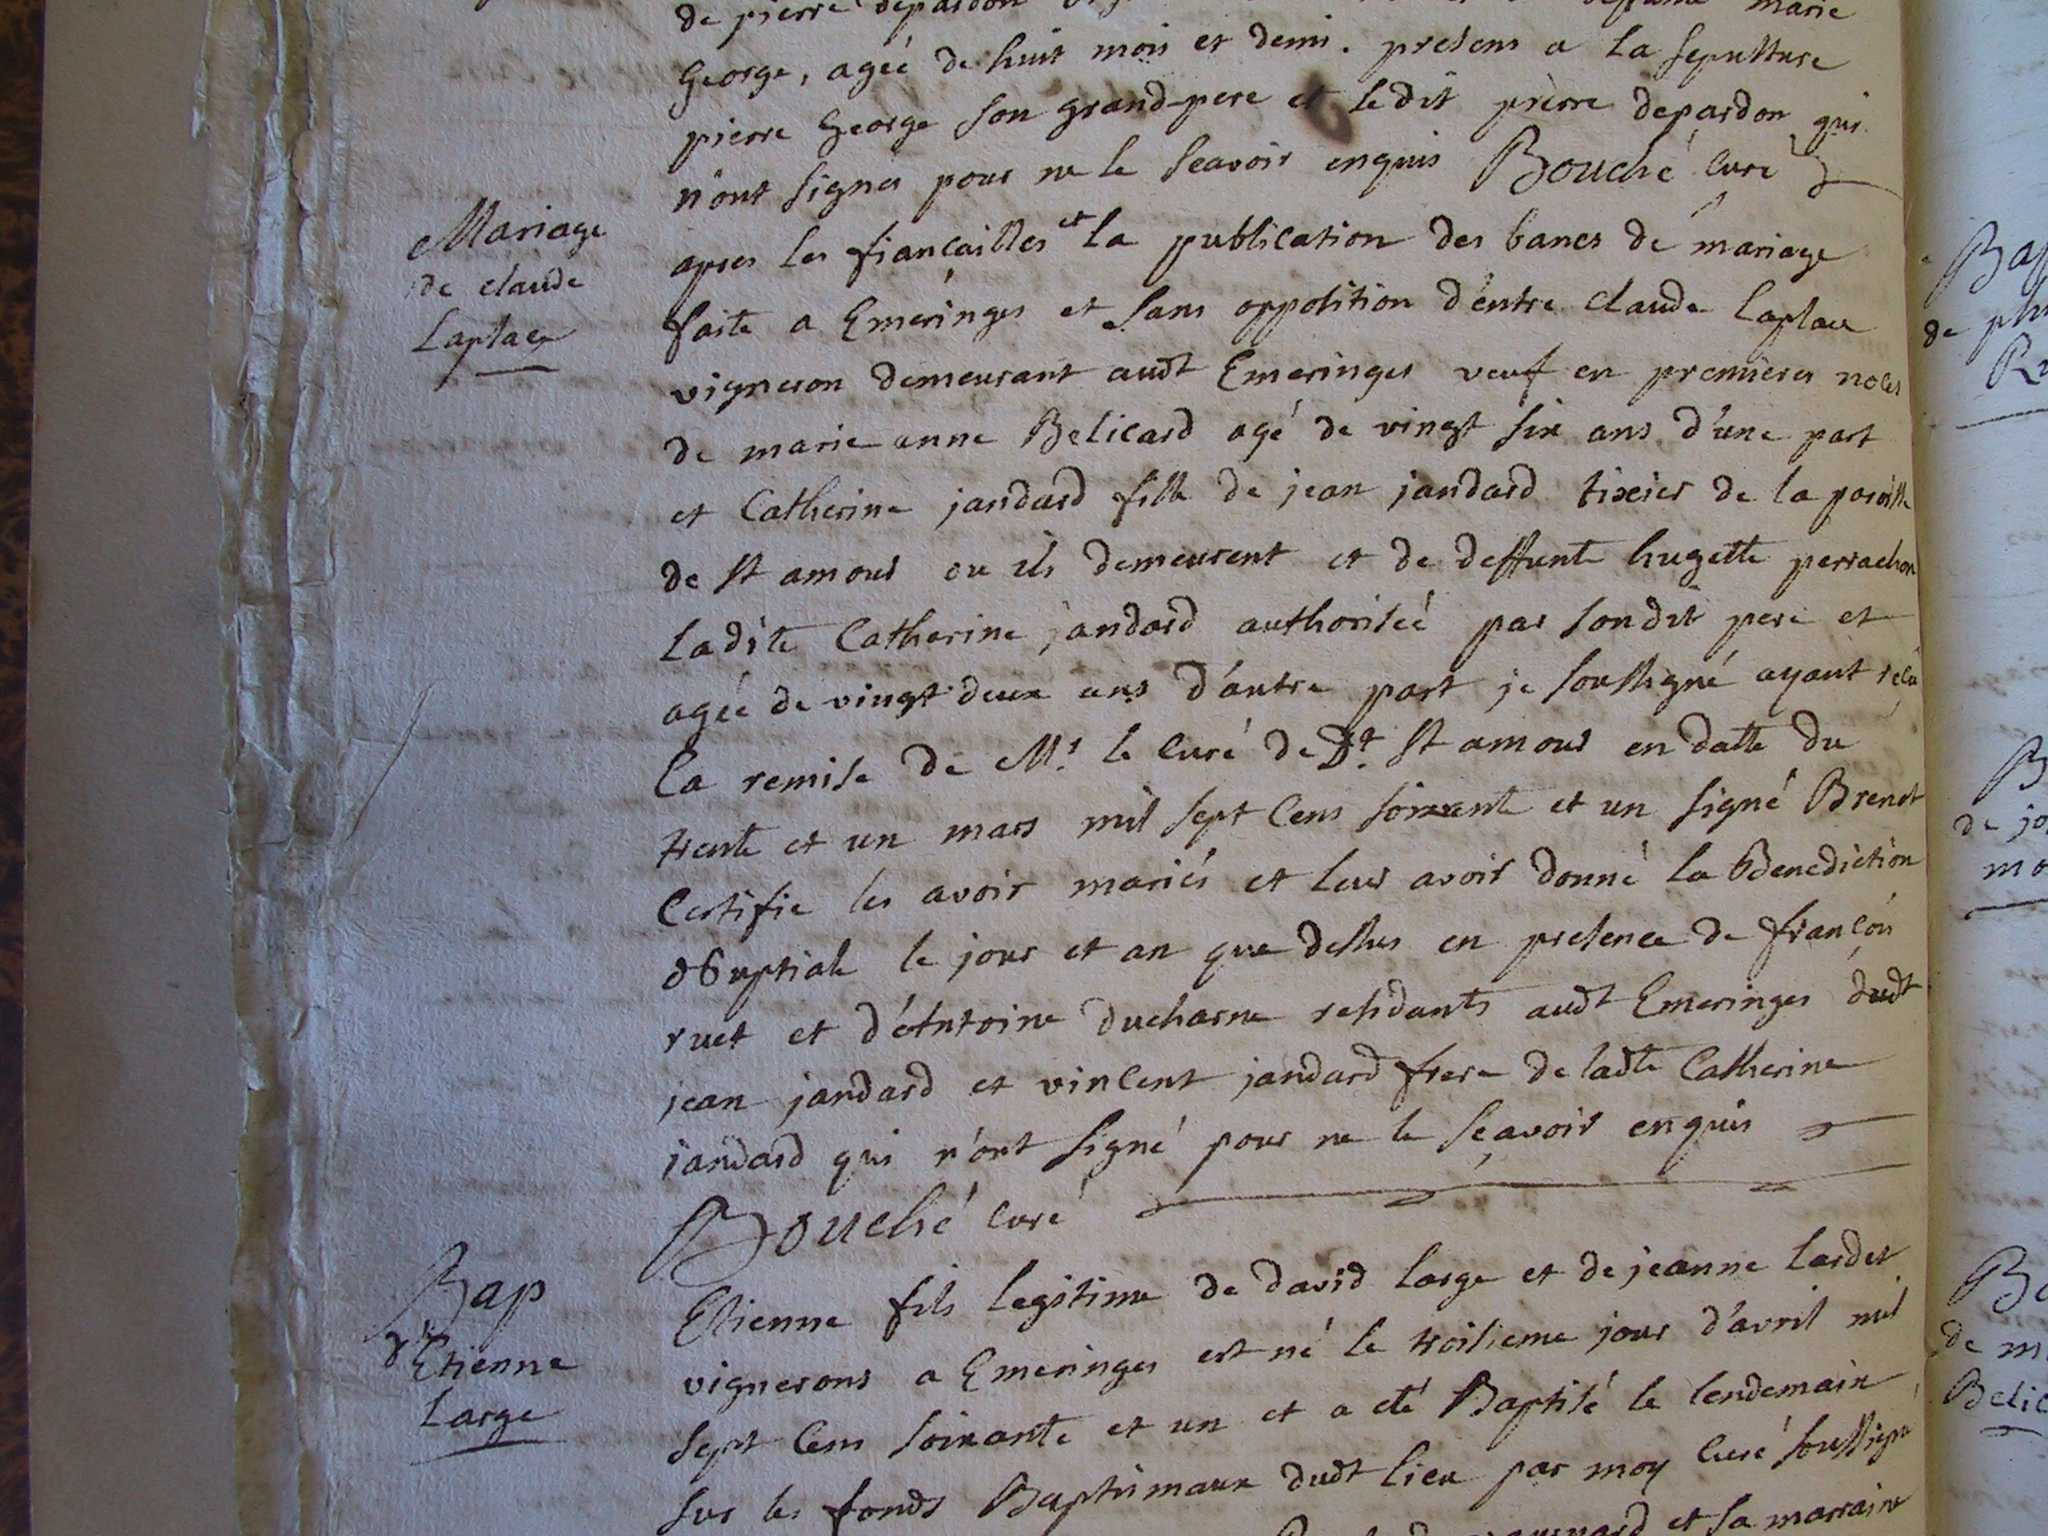 de pierre depardon
marie
George, ageé de huit mois et demi. presens a la sepulture
pierre George son grand-pere et le dit pierre depardon qui
n'ont signes pour ne le scavoir enquis Bouché curé
Mariage
de claude
Laplace
apres les fiançailles et la publication des bancs de mariage
faite a Emeringes et sans opposition d'entre claude Laplace
vigneron demeurant audt Emeringes veuf en premieres noces
de marie anne Belicard agé de vingt six ans d'une part
et Catherine jandard fille de jean jandard tixier de la paroisse
de st amour ou ils demeurent et de deffunte hugette perrachon
Ladite Catherine jandard authoriseé par sondit pere et
ageé de vingt deux ans d'autre part je soussigné ayant reçu
la remise de Mr. le curé de Dt. st amour en datte du
trente et un mars mil sept cens soixante et un signé Brenot
Certifie les avoir mariés et leur avoir donné la Benediction
Nuptiale le jour et an que dessus en presence de françois
ruet et d'Antoine ducharne residants audt Emeringes dudt
jean jandard et vincent jandard frere de ladte Catherine
jandard qui n'ont signé pour ne le sçavoir enquis
Bouché curé
Bap
d'Etienne
Large
Etienne fils legitime de david large et de jeanne lardet
vignerons a Emeringes est né le troisieme jour d'avril mil
sept cens soixante et un et a eté Baptisé le lendemain
sur les fonds Baptismaux dudt lieu par moy curé soussigné
et sa marraine
Bap
de
Ba
de
Belic